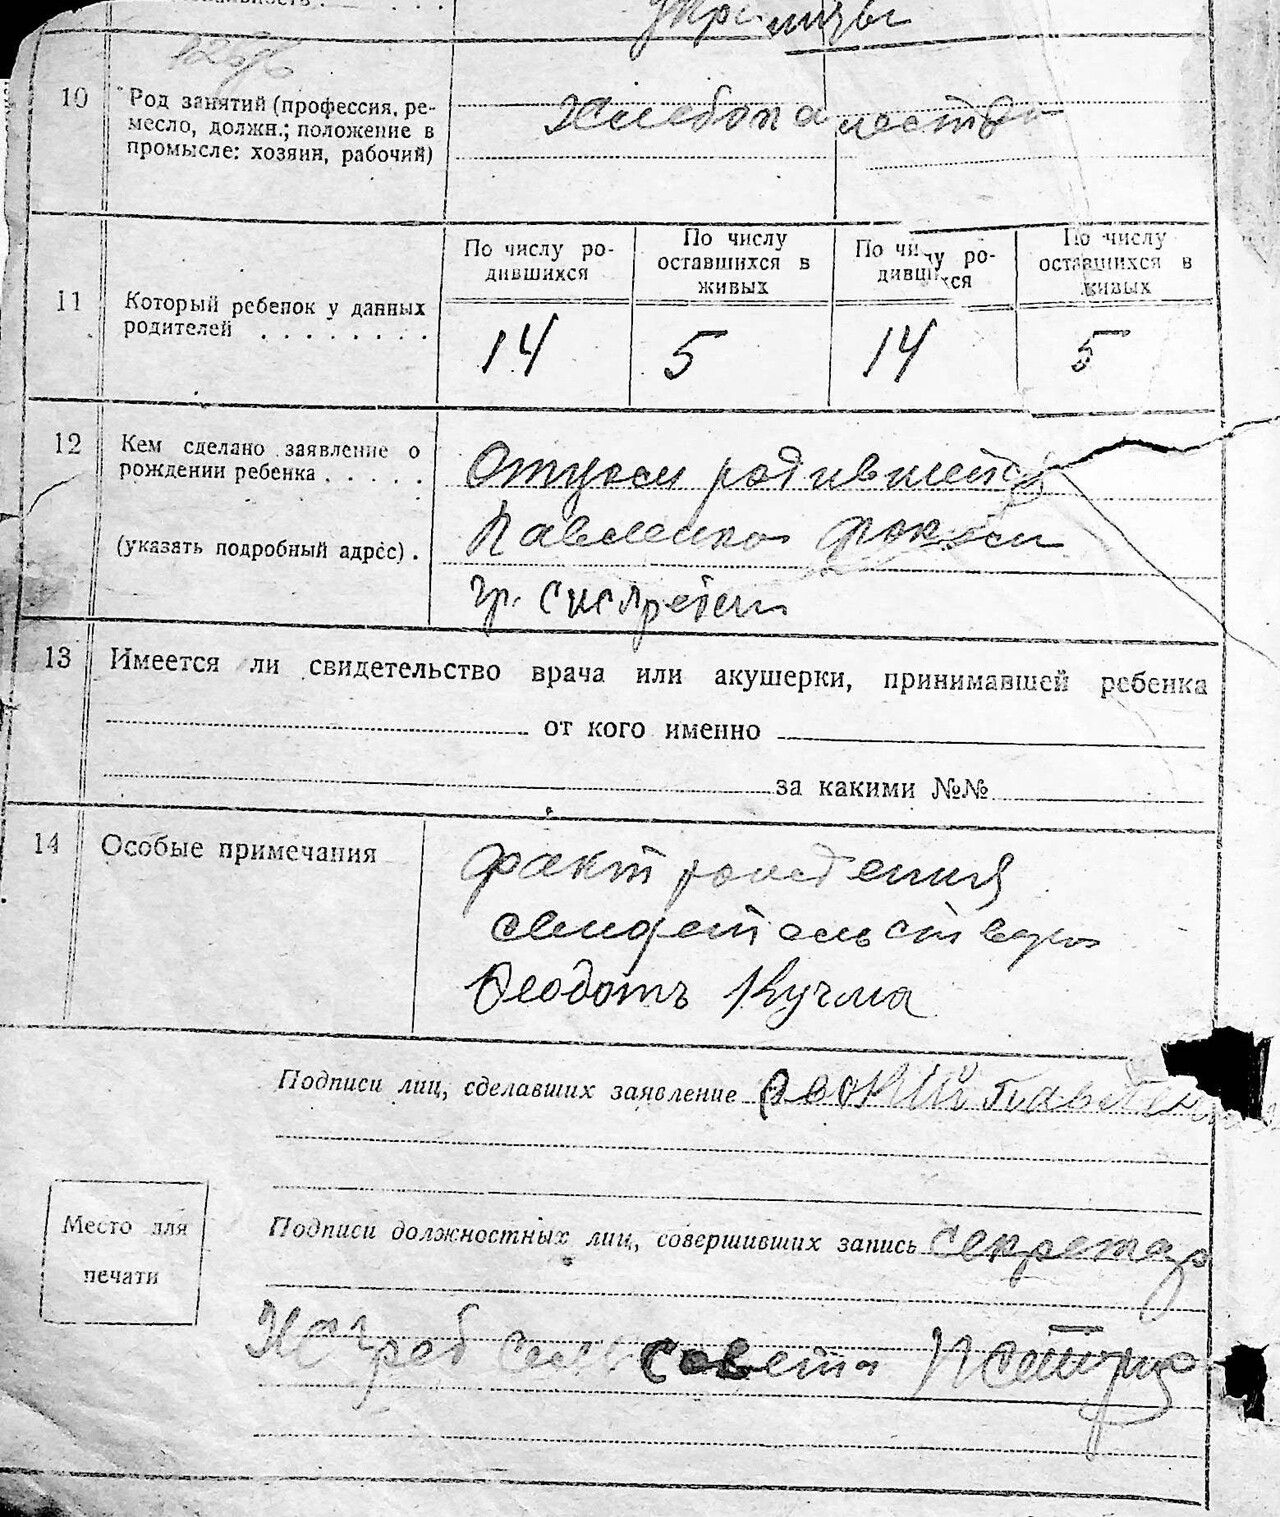 10 Род занятий (профессия, ре-
месло, должн.; положение в
промысле: хозяин, рабочий)
Хлебопашество
11 Который ребенок у данных
родителей . . . . . . . .
По числу ро-
дившихся
По числу
оставшихся в
живых
По числу ро-
дившихся
По числу
оставшихся в
живых
14 5 14 5
12 Кем сделано заявление о
рождении ребенка . . . . .
(указать подробный адрес) .
Отцом родившейся
Павленко
гр.
13 Имеется ли свидетельство врача или акушерки, принимавшей ребенка
от кого именно
за какими №№
14 Особые примечания
факт рождения
свидетельствую
Феодотъ Кучма
Подписи лиц, сделавших заявление Павленко
Место для
печати
Подписи должностных лиц, совершивших запись секретар
совета